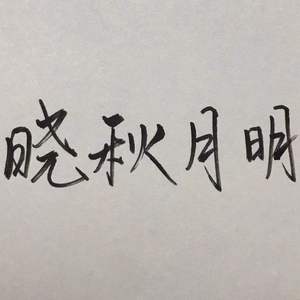 晓秋月明